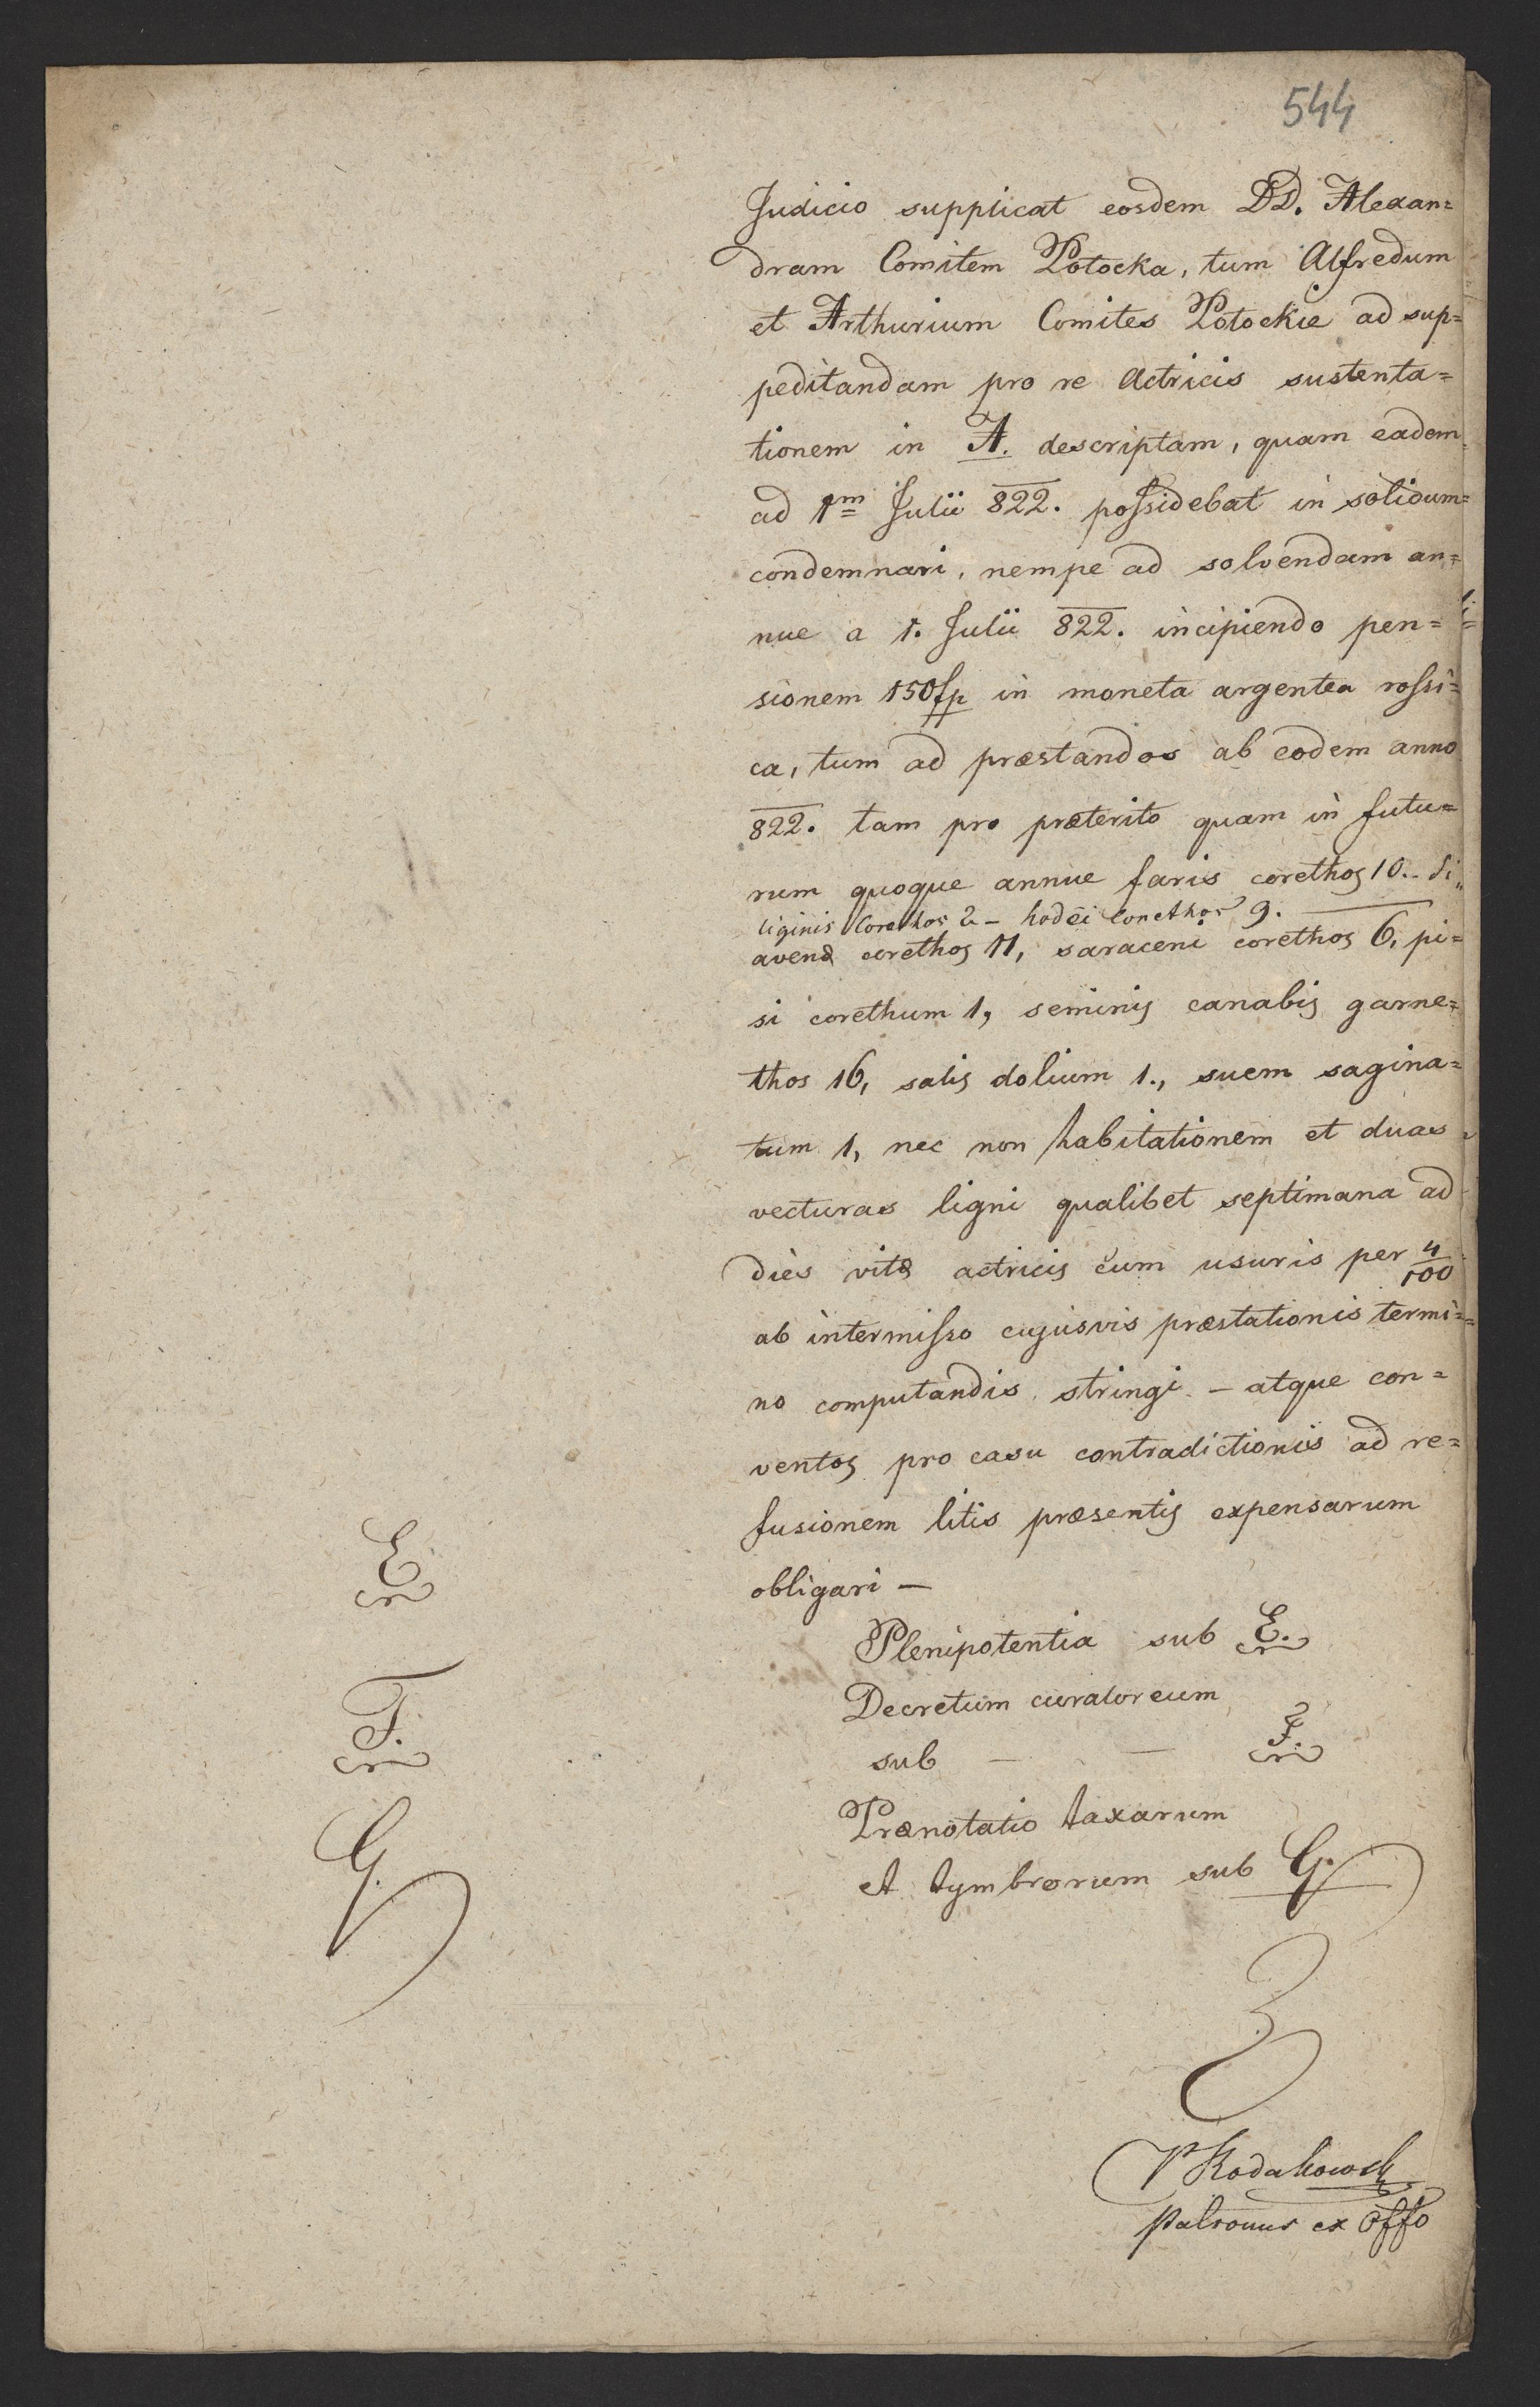 544
Judicio supplicat eosdem DD. Alexan=
dram Comitem Potocka, tum Alfredum
et Arthurium Comites Potockie ad sup=
peditandam pro re Actricis sustenta=
tionem in A. descriptam, quam eadem
ad 1m Julii 822. possidebat in solidum=
condemnari, nempe ad solvendam an=
nue a 1. Julii 822. incipiendo pen=
sionem 150 fp in moneta argentea rossi=
ca, tum ad præstandos ab eodem anno
822. tam pro præterito quam in futu=
rum quoque annue faris corethos 10.. Si„
liginis Corethos 2 – hodei Corethos 9.
avenæ corethos 11, saraceni corethos 6, pi=
si corethum 1, seminis canabis garne=
thos 16, salis dolium 1., suem sagina=
tum 1, nec non habitationem et duas
vecturas ligni qualibet septimana ad
dies vitæ actricis cum usuris per 4/100
ab intermisso cujusvis præstationis termi=
no computandis stringi – atque con=
ventos pro casu contradictionis ad re=
fusionem litis præsentis expensarum
obligari –
E
Plenipotentia sub E.
Decretum curatoreum
F.
sub – – F.
Prænotatio taxarum
G.
et tymbrorum sub G.
V Rodakowski
Patronus ex Offo